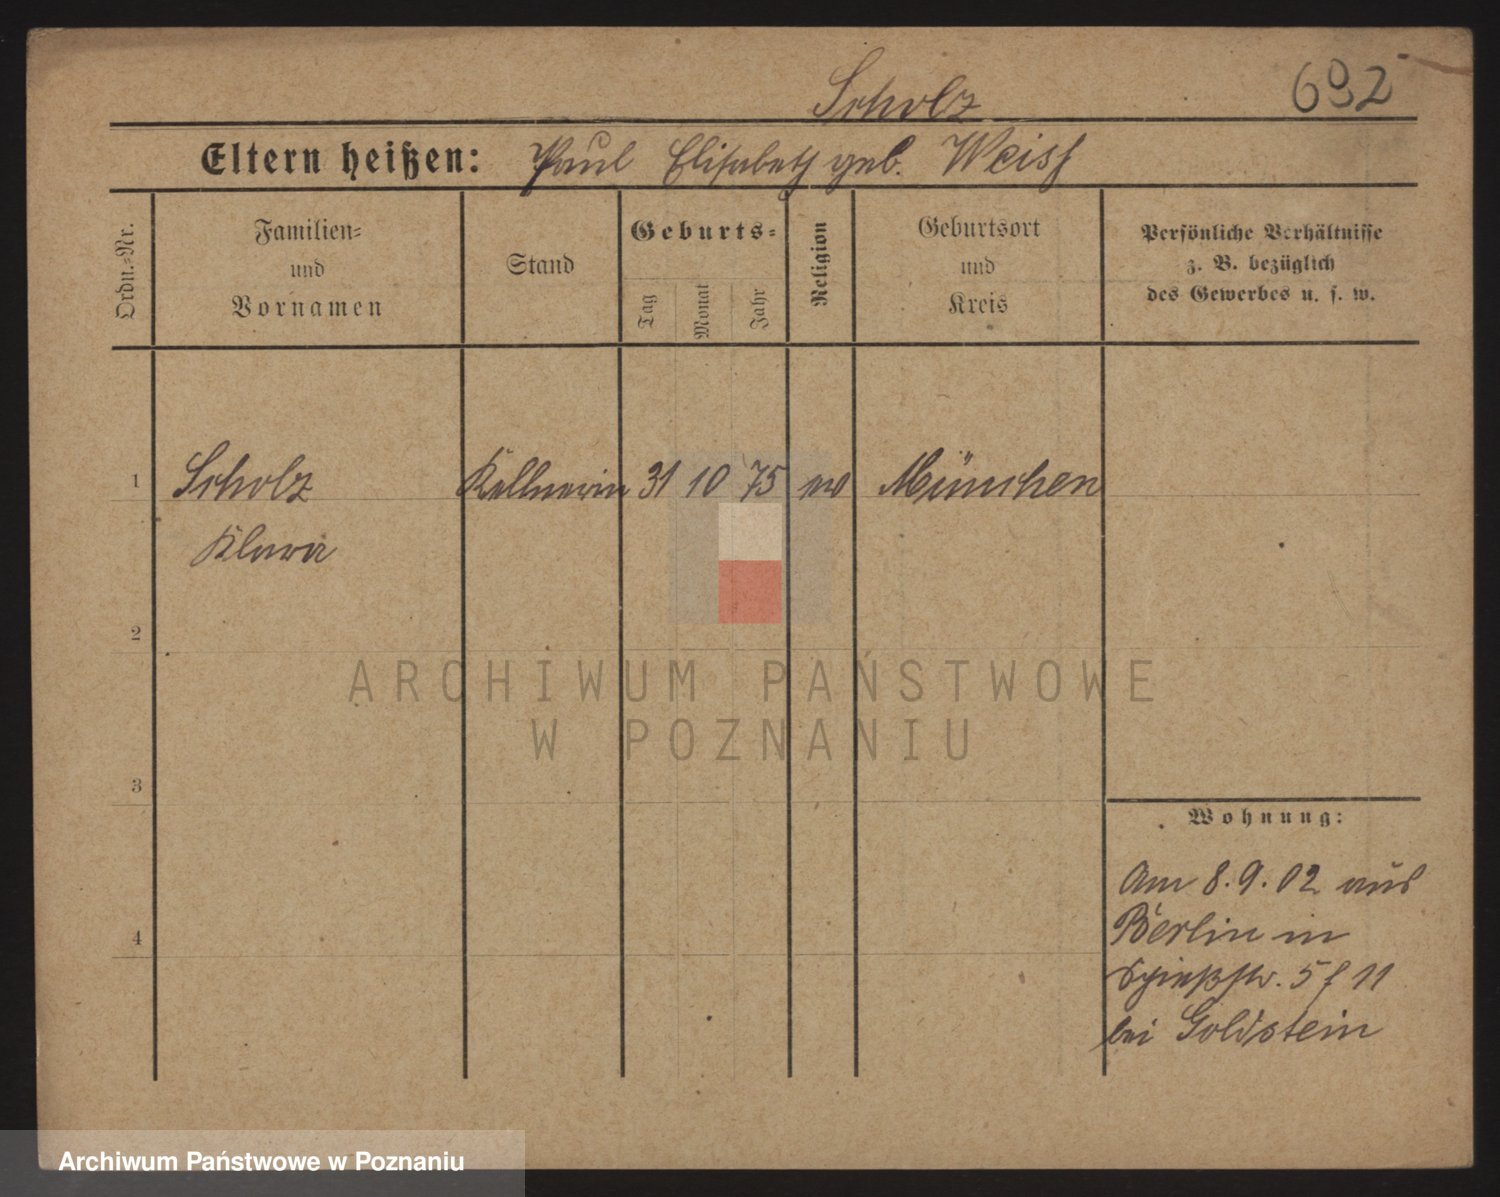 Scholz
692
Eltern heißen: Paul Elisabeth geb. Weiss
Ordn.=Nr.
Familien=
und
Vornamen
Stand
Geburts=
Tag
Monat
Jahr
Religion
Geburtsort
und
Kreis
Persönliche Verhältnisse
z. B. bezüglich
des Gewerbes u. s. w.
1 Scholz Kellnerin 31 10 75 ev München
Klara
2
3
4
Wohnung:
Am 8.9.02 aus
Berlin in
Schießstr. 5 11
bei Goldstein
ARCHIWUM PAŃSTWOWE
W POZNANIU
Archiwum Państwowe w Poznaniu